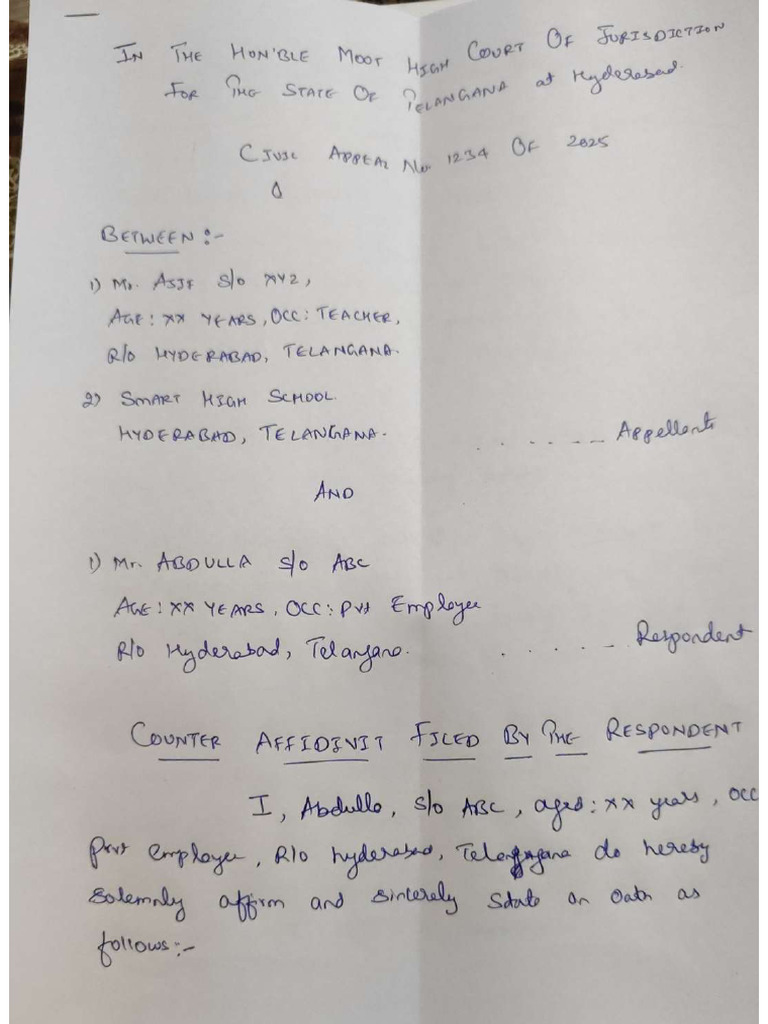 IN THE HON'BLE MOOT HIGH COURT OF JURISDICTION
FOR THE STATE OF TELANGANA at Hyderabad.
CIVIL APPEAL No. 1234 OF 2025
BETWEEN :-
1) Mr. ASIF S/o XYZ,
AGE : XX YEARS, OCC : TEACHER,
R/o HYDERABAD, TELANGANA.
2) SMART HIGH SCHOOL.
HYDERABAD, TELANGANA. . . . . . . Appellants
AND
1) Mr. ABDULLA S/o ABC
AGE : XX YEARS, OCC : Pvt Employee
R/o Hyderabad, Telangana. . . . . . . Respondent
COUNTER AFFIDIVIT FILED BY THE RESPONDENT
I, Abdulla, S/o ABC, aged : xx years, OCC
Pvt employee, R/o hyderabad, Telangana do hereby
Solemnly affirm and sincerely state on oath as
follows :-